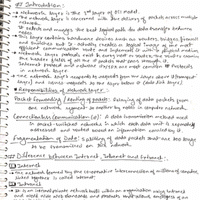 # Introduction:
→ Network layer is the 3rd layer of OSI model.
→ The network layer is concerned with the delivery of packets across multiple
network.
→ It selects and manages the best logical path for data transfer between
nodes.
→ This layer contains hardware devices such as routers, bridges, firewalls
and switches but it actually creates a logical image of the most
efficient communication route and implements it with a physical medium.
→ Network layer protocols exist in every host or router. The router examines
the header fields of all the IP packets that pass through it.
→ Internet protocol and Netware IPX/SPX are most common protocols
in network layer.
→ The network layer responds to requests from the layer above it (transport
layer) and issues requests to the layer below it (data link layer)
# Responsibilities of Network layer:
Packet forwarding / Routing of packets: Relaying of data packets from
one network segment to another by nodes in computer network.
Connectionless communication (IP): A data transmission method used
in packet switched networks in which each data unit is separately
addressed and routed based on information carried by it.
Fragmentation of Data: Splitting of data packets that are too large
to be transmitted on the network.
# Difference between Internet, Intranet and Extranet:
Internet
→ The network formed by the co-operative interconnection of millions of computers
linked together is called internet.
Intranet
→ It is an internal private network built within an organization using Internet
and